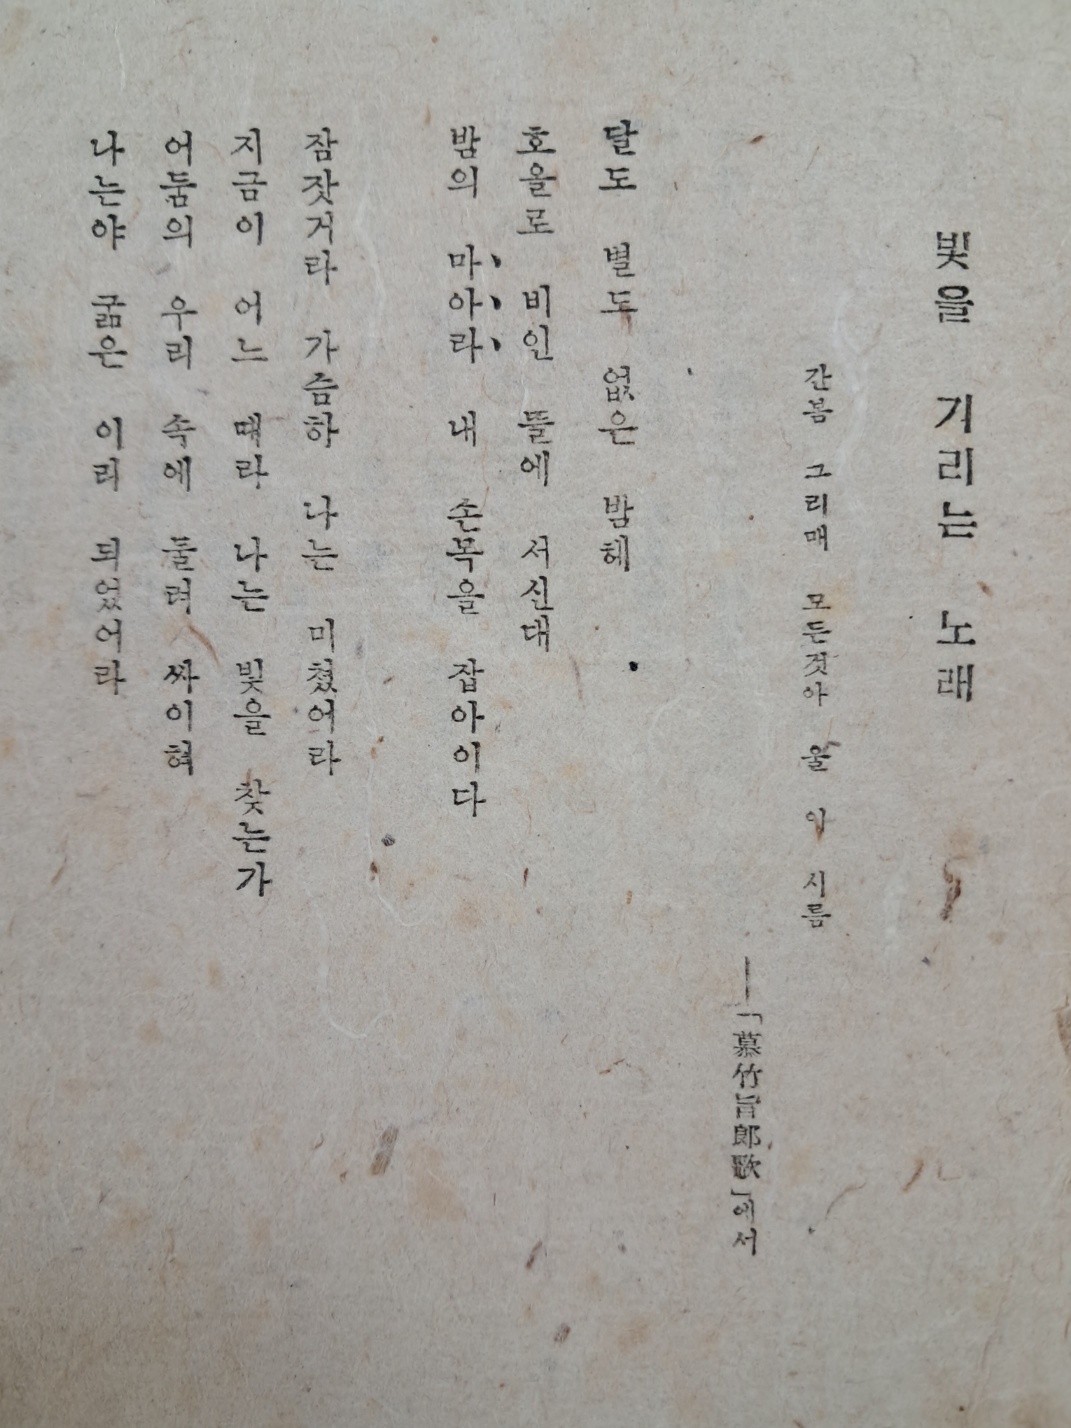 빛을 기리는 노래
간봄 그리매 모든것아 울 이 시름
―「慕竹旨郎歌」에서
달도 별도 없은 밤헤
호올로 비인 뜰에 서신대
밤의 마아라 내 손목을 잡아이다
잠잣거라 가슴하 나는 미쳤어라
지금이 어느 때라 나는 빛을 찾는가
어둠의 우리 속에 둘려 싸이혀
나는야 굶은 이리 되었어라